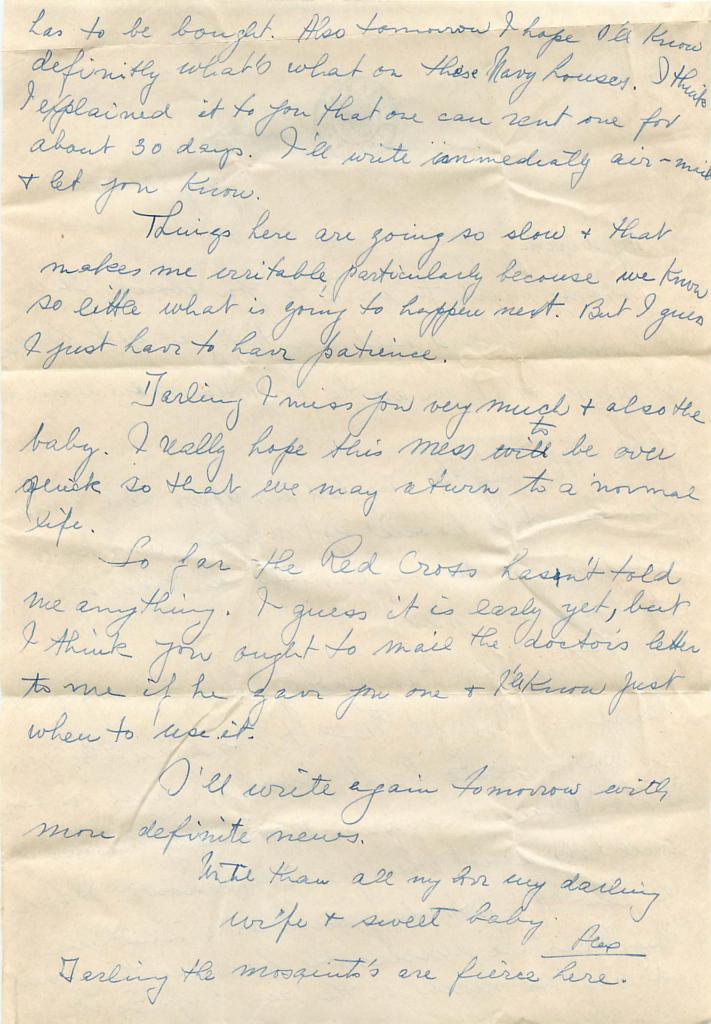 has to be bought. Also tomorrow I hope I'll know
definitly what's what on these Navy houses. I think
I explained it to you that one can rent one for
about 30 days. I'll write immediatly air-mail
+ let you know.
Things here are going so slow + that
makes me irritable particularly because we know
so little what is going to happen next. But I guess
I just have to have patience.
Darling I miss you very much + also the
baby. I really hope this mess to be over
quick so that we may return to a normal
life.
So far the Red Cross hasn't told
me anything. I guess it is early yet, but
I think you ought to mail the doctor's letter
to me if he gave you one + I'll know just
when to use it.
I'll write again tomorrow with
more definite news.
With than all my love my darling
wife + sweet baby.
Alex
Darling the mosquito's are fierce here.